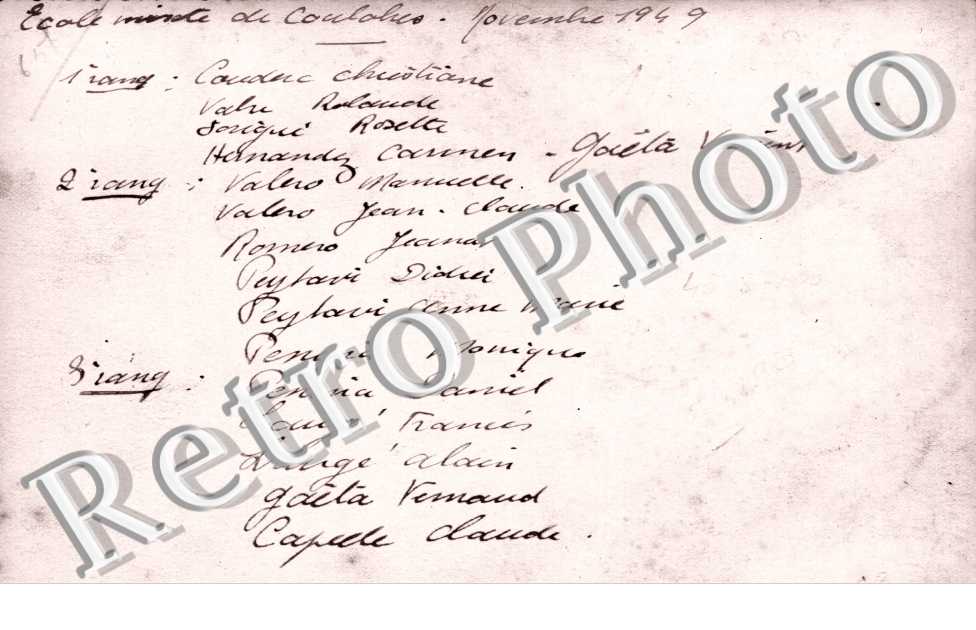 Ecole mixte de Coulobres. Novembre 1949
1 rang : Couderc Christiane
Valre Rolande
Rosette
Hernandez Carmen - Gaëta
2 rang : Valero Manuelle.
Valero Jean-Claude
Romero
Peytavi Didier
Peytavi Anne Marie
Monique
3 rang :
Daniel
Francis
Alain
Gaëta Vernaud
Capelle Claude.
Retro Photo